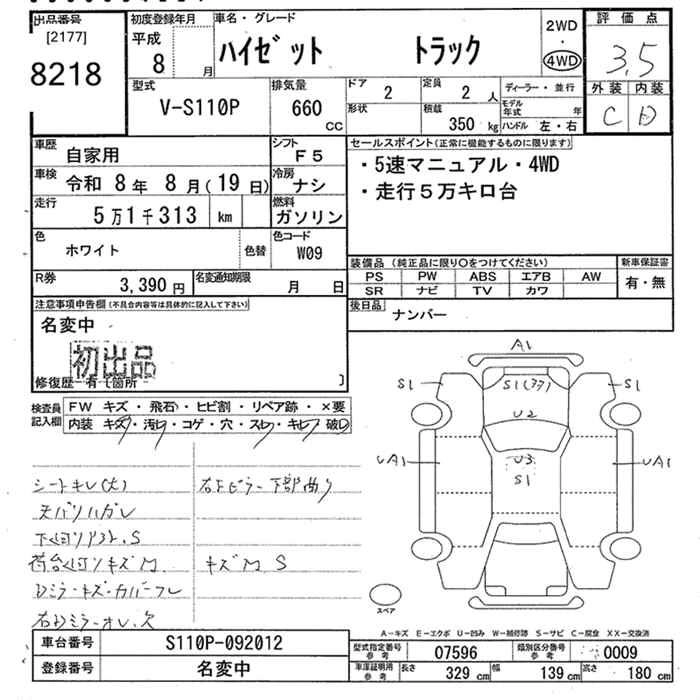 出品番号
[2177]
8218
初度登録年月
平成
8 月
車名・グレード
ハイゼット トラック
2WD
・
4WD
評価点
3.5
外装 内装
C D
型式
V-S110P
排気量
660
CC
ドア
2
定員
2 人
形状
積載
350 kg
ディーラー・並行
モデル年式 年
ハンドル 左・右
車歴
自家用
シフト
F5
車検
令和 8年 8月(19日)
冷房
ナシ
走行
5万1千313 km
燃料
ガソリン
色
ホワイト
色替
色コード
W09
R券
3,390 円
名変通知期限
月 日
セールスポイント(正常に機能するものに限ります)
・5速マニュアル・4WD
・走行5万キロ台
装備品 (純正品に限り○をつけてください)
PS PW ABS エアB AW
SR ナビ TV カワ
新車保証書
有・無
後日品
ナンバー
注意事項申告欄(不具合内容等は具体的に記入して下さい)
名変中
初出品
修復歴 有〔箇所 〕
検査員記入欄
FW キズ・飛石・ヒビ割・リペア跡・×要
内装 キズ・汚レ・コゲ・穴・スレ・キレ・破レ
シートキレ(大)
右Fピラー下部曲り
天バリハガレ
下廻りサビ.S
荷台廻りキズM
キズM S
Dミラーキズ・カバーフレ
A1
S1
S1
U2
U3
S1
UA1
UA1
スペア
A-キズ E-エクボ U-凹み W-補修跡 S-サビ C-腐食 XX-交換済
車台番号
S110P-092012
登録番号
名変中
型式指定番号
参考
07596
類別区分番号
参考
0009
車庫証明用
参考
長さ 329 cm 幅 139 cm 高さ 180 cm